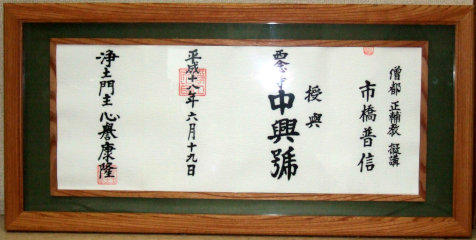 僧都 正輔教 擬講
市橋普信
授與
西念寺
中興號
平成十八年六月十九日
浄土門主 心譽康隆